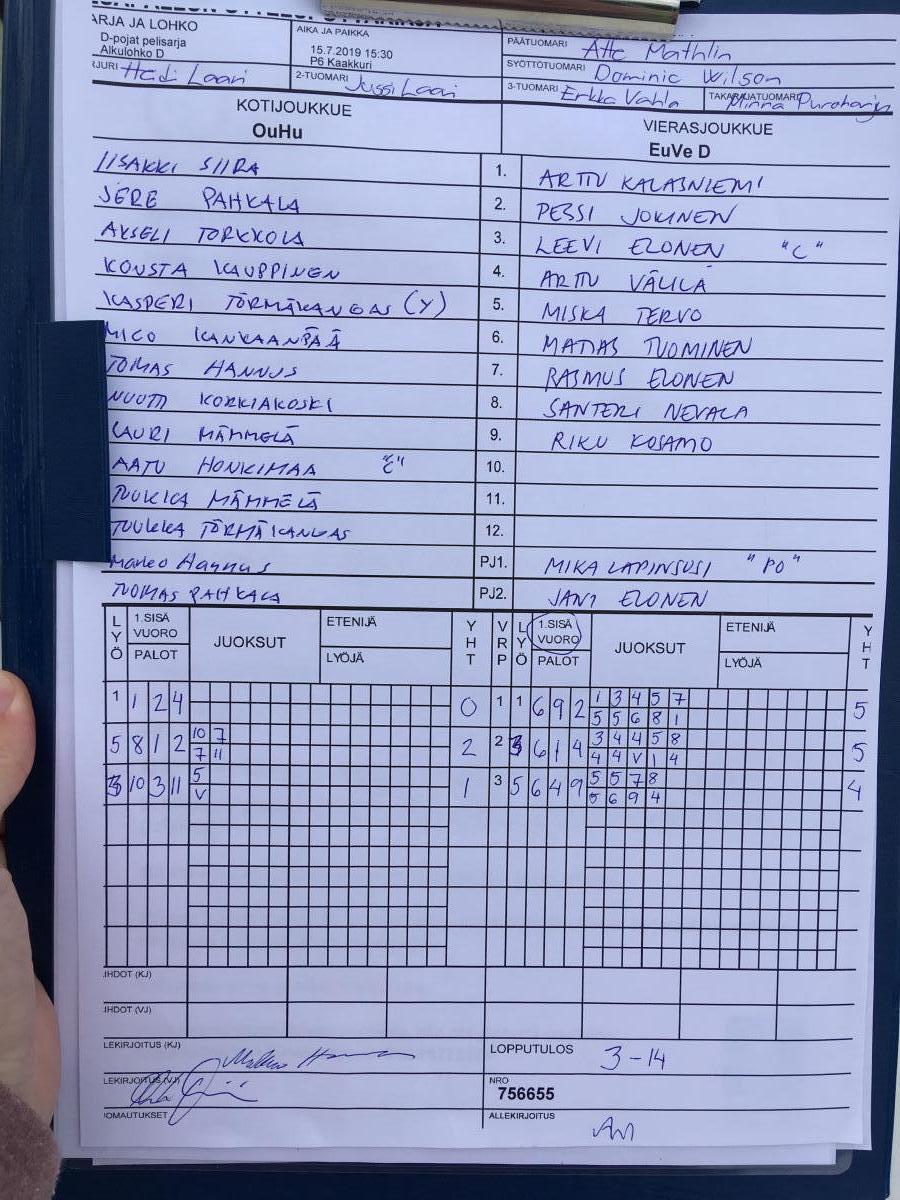 ARJA JA LOHKO
D-pojat pelisarja
Alkulohko D
AIKA JA PAIKKA
15.7.2019 15:30
P6 Kaakkuri
PÄÄTUOMARI Atte Mathlin
SYÖTTÖTUOMARI Dominic Wilson
RJURI Heidi Laari
2-TUOMARI Jussi Laari
3-TUOMARI Erkka Vahla
TAKARAJATUOMARI Minna Puroharju
KOTIJOUKKUE
OuHu
VIERASJOUKKUE
EuVe D
IISAKKI SIIRA 1. ARTTU KALASNIEMI
JERE PAHKALA 2. PESSI JOKINEN
AKSELI TORKKOLA 3. LEEVI ELONEN "C"
KONSTA KAUPPINEN 4. ARTTU VÄLILÄ
KASPERI TÖRMÄKANGAS (Y) 5. MISKA TERVO
MICO KANKAANPÄÄ 6. MATIAS TUOMINEN
TOMAS HANNUS 7. RASMUS ELONEN
NUUTTI KORKIAKOSKI 8. SANTERI NEVALA
LAURI MÄMMELÄ 9. RIKU KOSAMO
AATU HONKIMAA "C" 10.
TUUKKA MÄMMELÄ 11.
TUUKKA TÖRMÄKANGAS 12.
Marko Hannus PJ1. MIKA LAPINSUSI "PO"
TUOMAS PAHKALA PJ2. JANI ELONEN
LYÖ 1.SISÄ VUORO PALOT JUOKSUT ETENIJÄ LYÖJÄ YHT VRP LYÖ 1.SISÄ VUORO PALOT JUOKSUT ETENIJÄ LYÖJÄ YHT
1 1 2 4 0 1 1 6 9 2 1 3 4 5 7 5
5 5 6 8 1
5 8 1 2 10 7 2 2 3 6 1 4 3 4 4 5 8 5
7 11 4 4 V 1 4
3 10 3 11 5 1 3 5 6 4 9 5 5 7 8 4
V 5 6 9 4
IHDOT (KJ)
IHDOT (VJ)
LEKIRJOITUS (KJ)
LOPPUTULOS 3-14
LEKIRJOITUS (VJ)
NRO
756655
OMAUTUKSET
ALLEKIRJOITUS